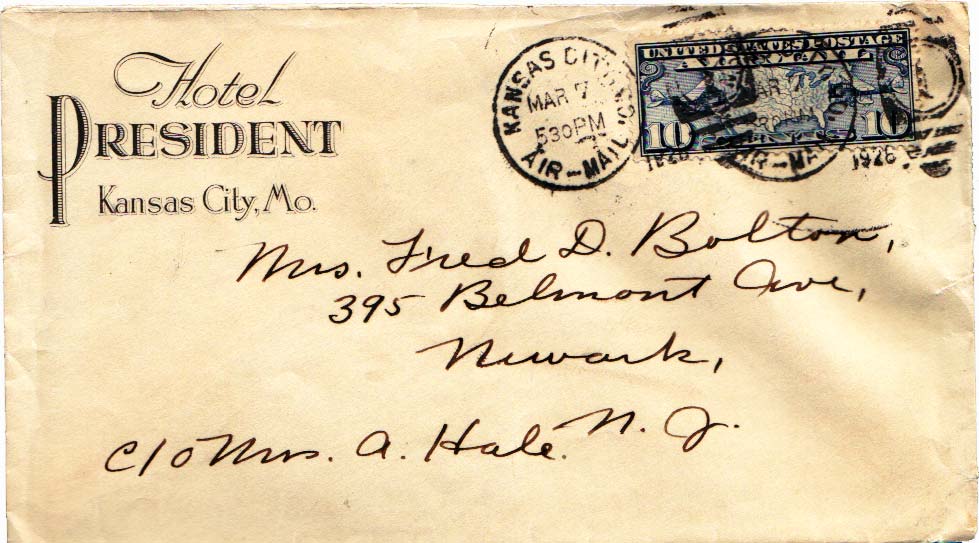 Hotel
PRESIDENT
Kansas City, Mo.
KANSAS CITY, MO.
MAR 7
530PM
AIR-MAIL
1928
UNITED STATES POSTAGE
AIR MAIL
10 10
MAR 7
AIR-MAIL
1928
Mrs. Fred D. Bolton,
395 Belmont Ave,
Newark,
N. J.
c/o Mrs. A. Hale.